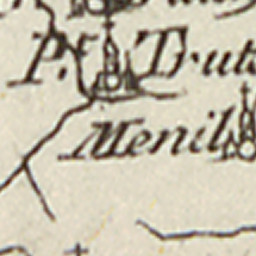 P. Trut
Menil